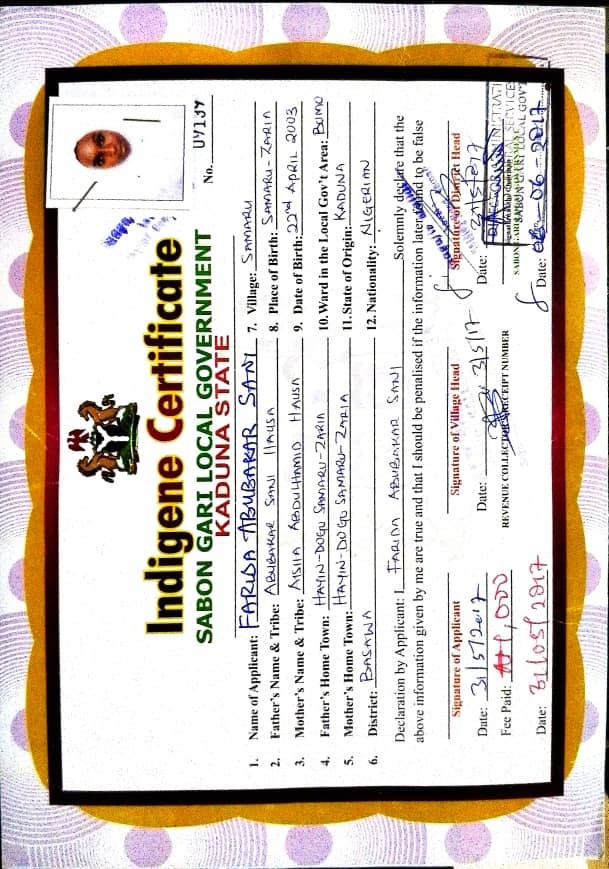 Indigene Certificate
SABON GARI LOCAL GOVERNMENT
KADUNA STATE
No. U4134
1. Name of Applicant: FARIDA ABUBAKAR SANI
2. Father's Name & Tribe: ABUBAKAR SANI HAUSA
3. Mother's Name & Tribe: AISHA ABDULHAMID HAUSA
4. Father's Home Town: HAYIN-DOGO SAMARU-ZARIA
5. Mother's Home Town: HAYIN-DOGO SAMARU-ZARIA
6. District: BASAWA
7. Village: SAMARU
8. Place of Birth: SAMARU-ZARIA
9. Date of Birth: 22nd APRIL 2003
10. Ward in the Local Gov't Area: BOMO
11. State of Origin: KADUNA
12. Nationality: NIGERIAN
Declaration by Applicant: I FARIDA ABUBAKAR SANI Solemnly declare that the
above information given by me are true and that I should be penalised if the information later found to be false
Signature of Applicant
Date: 31/5/2017
Fee Paid: ₦1,000
Date: 31/05/2017
Signature of Village Head
Date: 31/5/17
REVENUE COLLECTOR RECEIPT NUMBER
Signature of District Head
Date: 31/5/2017
SABON GARI LOCAL GOV'T
Date: 06-06-2017